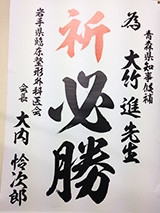 青森県知事候補
為 大竹進先生
祈必勝
岩手県臨床整形外科医会
会長 大内怜次郎